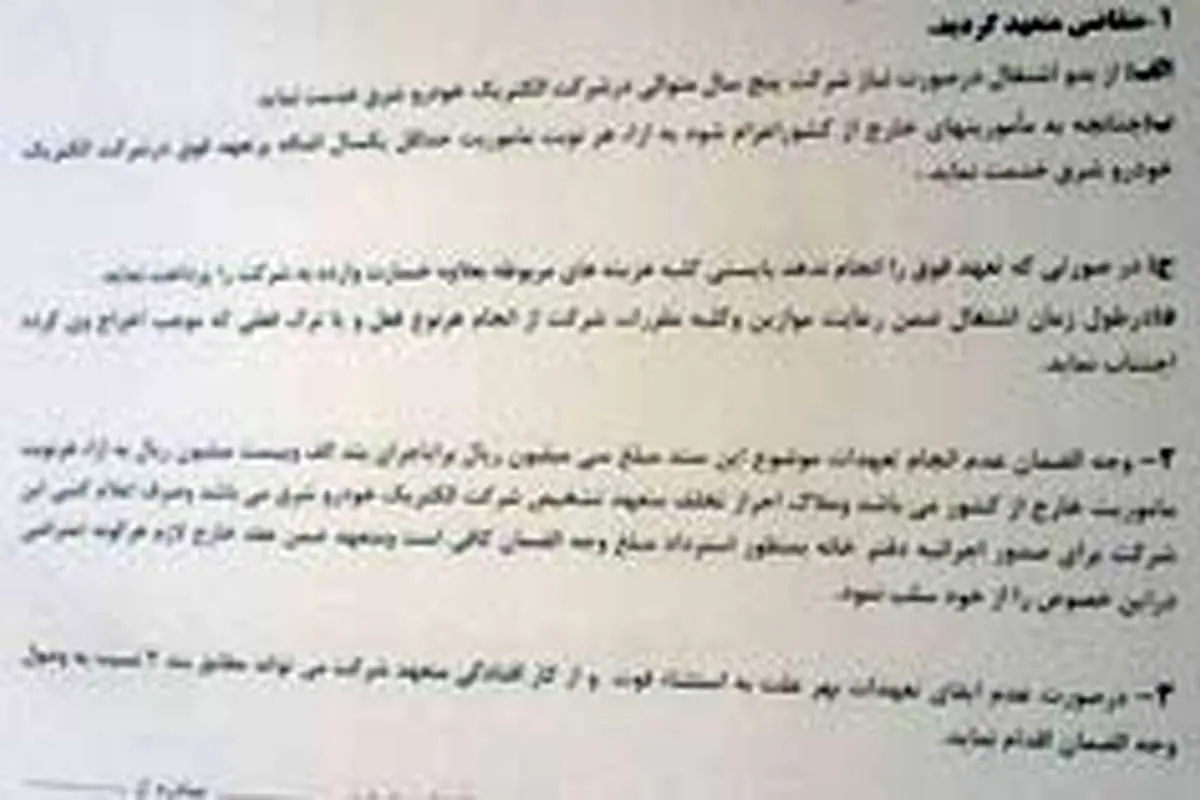 ۱- متقاضی متعهد گردید
الف) از بدو اشتغال درصورت نیاز شرکت پنج سال متوالی درشرکت الکتریک خودرو شرق خدمت نماید
ب) چنانچه به مأموریتهای خارج از کشور اعزام شود به ازاء هر نوبت ماموریت حداقل یکسال اضافه برتعهد فوق درشرکت الکتریک
خودرو شرق خدمت نماید .
ج) در صورتی که تعهد فوق را انجام ندهد بایستی کلیه هزینه های مربوطه بعلاوه خسارت وارده به شرکت را پرداخت نماید
د) درطول زمان اشتغال ضمن رعایت موازین وکلیه مقررات شرکت از انجام هرنوع فعل و یا ترک فعلی که موجب اخراج وی گردد
اجتناب نماید.
۲- وجه الضمان عدم انجام تعهدات موضوع این سند مبلغ سی میلیون ریال برای بند الف وبیست میلیون ریال به ازاء هرنوبت
ماموریت خارج از کشور می باشد وملاک احراز تخلف متعهد تشخیص شرکت الکتریک خودرو شرق می باشد وصرف اعلام کتبی این
شرکت برای صدور اجرائیه دفتر خانه بمنظور استرداد مبلغ وجه الضمان کافی است ومتعهد ضمن عقد خارج لازم هرگونه اعتراضی
دراین خصوص را از خود سلب نمود.
۳- درصورت عدم ایفای تعهدات بهر علت به استثناء فوت و از کار افتادگی متعهد شرکت می تواند مطابق بند ۲ نسبت به وصول
وجه الضمان اقدام نماید.